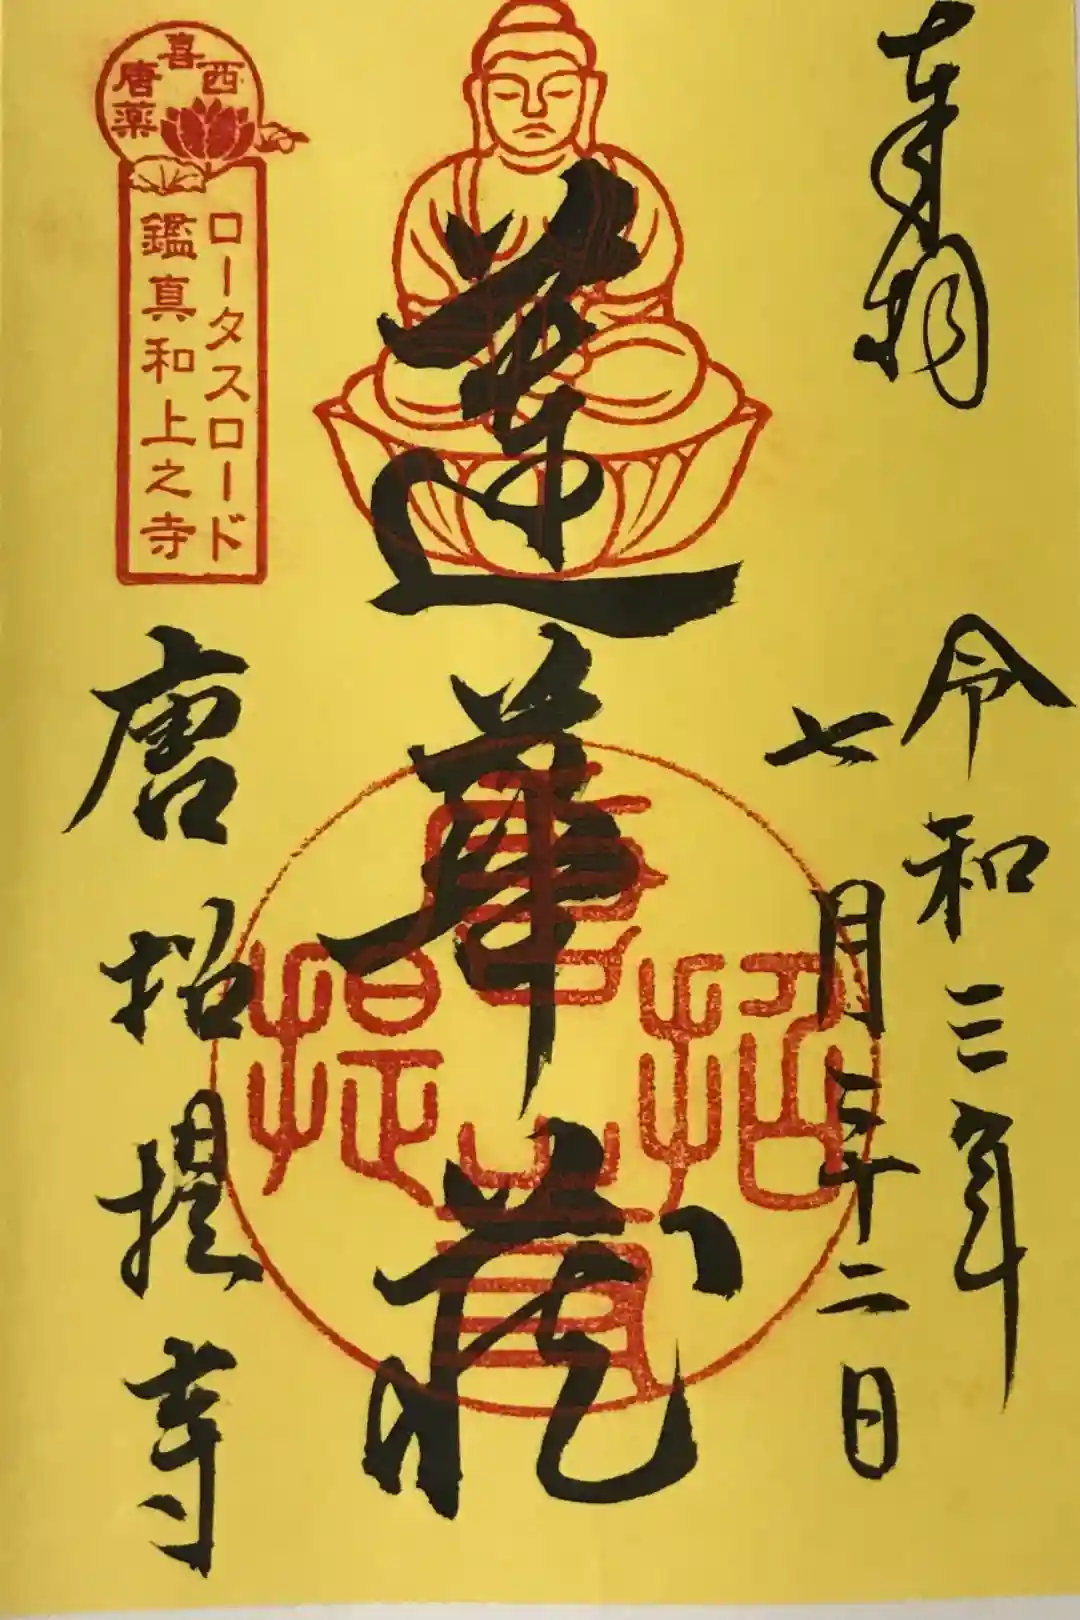 奉拝
令和三年
七月二十二日
蓮華蔵
唐招提寺
西喜唐薬
ロータスロード
鑑真和上之寺
唐招提寺